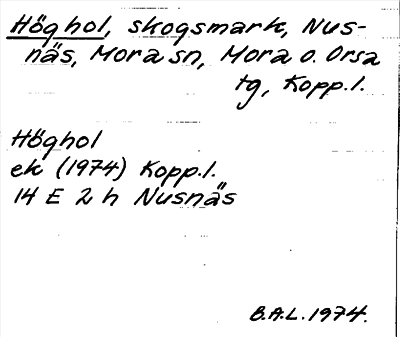 Höghol, skogsmark, Nus-
näs, Mora sn, Mora o. Orsa
tg, Kopp.l.
Höghol
ek (1974) Kopp.l.
14 E 2 h Nusnäs
B.A.L. 1974.